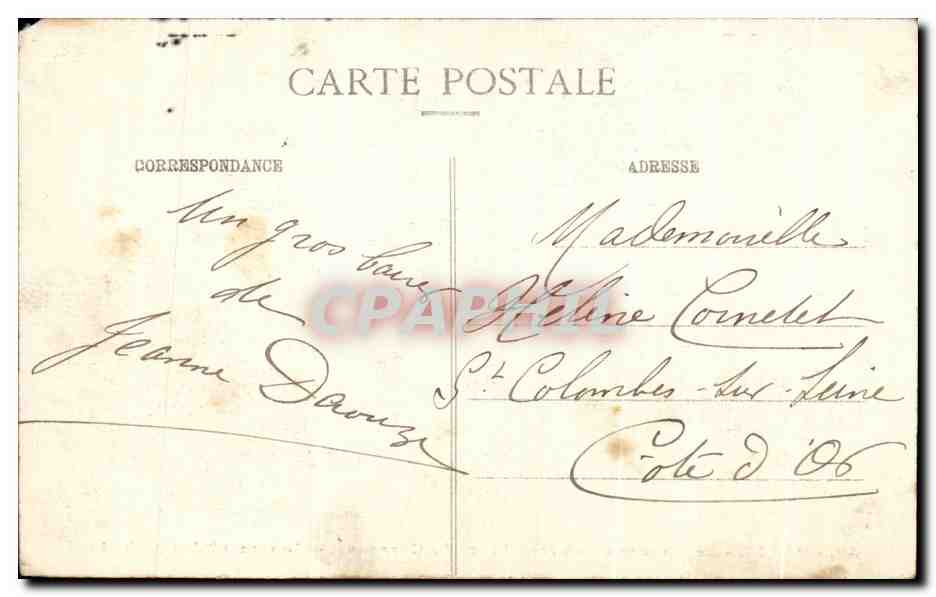 CARTE POSTALE
CORRESPONDANCE
ADRESSE
Un gros baiser
de
Jeanne Daouze
Mademoiselle
Hélène Cornetet
St Colombes-sur-Seine
Côte d'Or
CPAPHIL